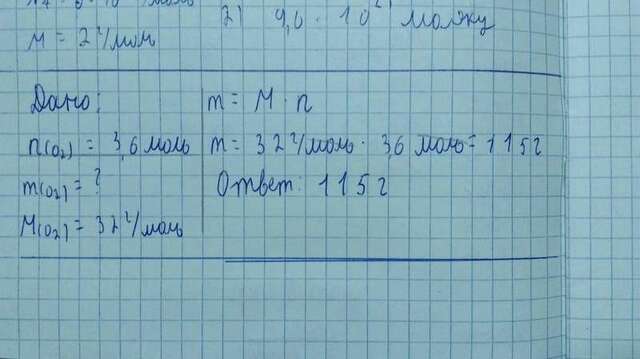 M = 2 г/моль
2) 9,0 · 10²¹ молеку
Дано:
n(O₂) = 3,6 моль
m(O₂) = ?
M(O₂) = 32 г/моль
m = M · n
m = 32 г/моль · 3,6 моль = 115 г
Ответ: 115 г